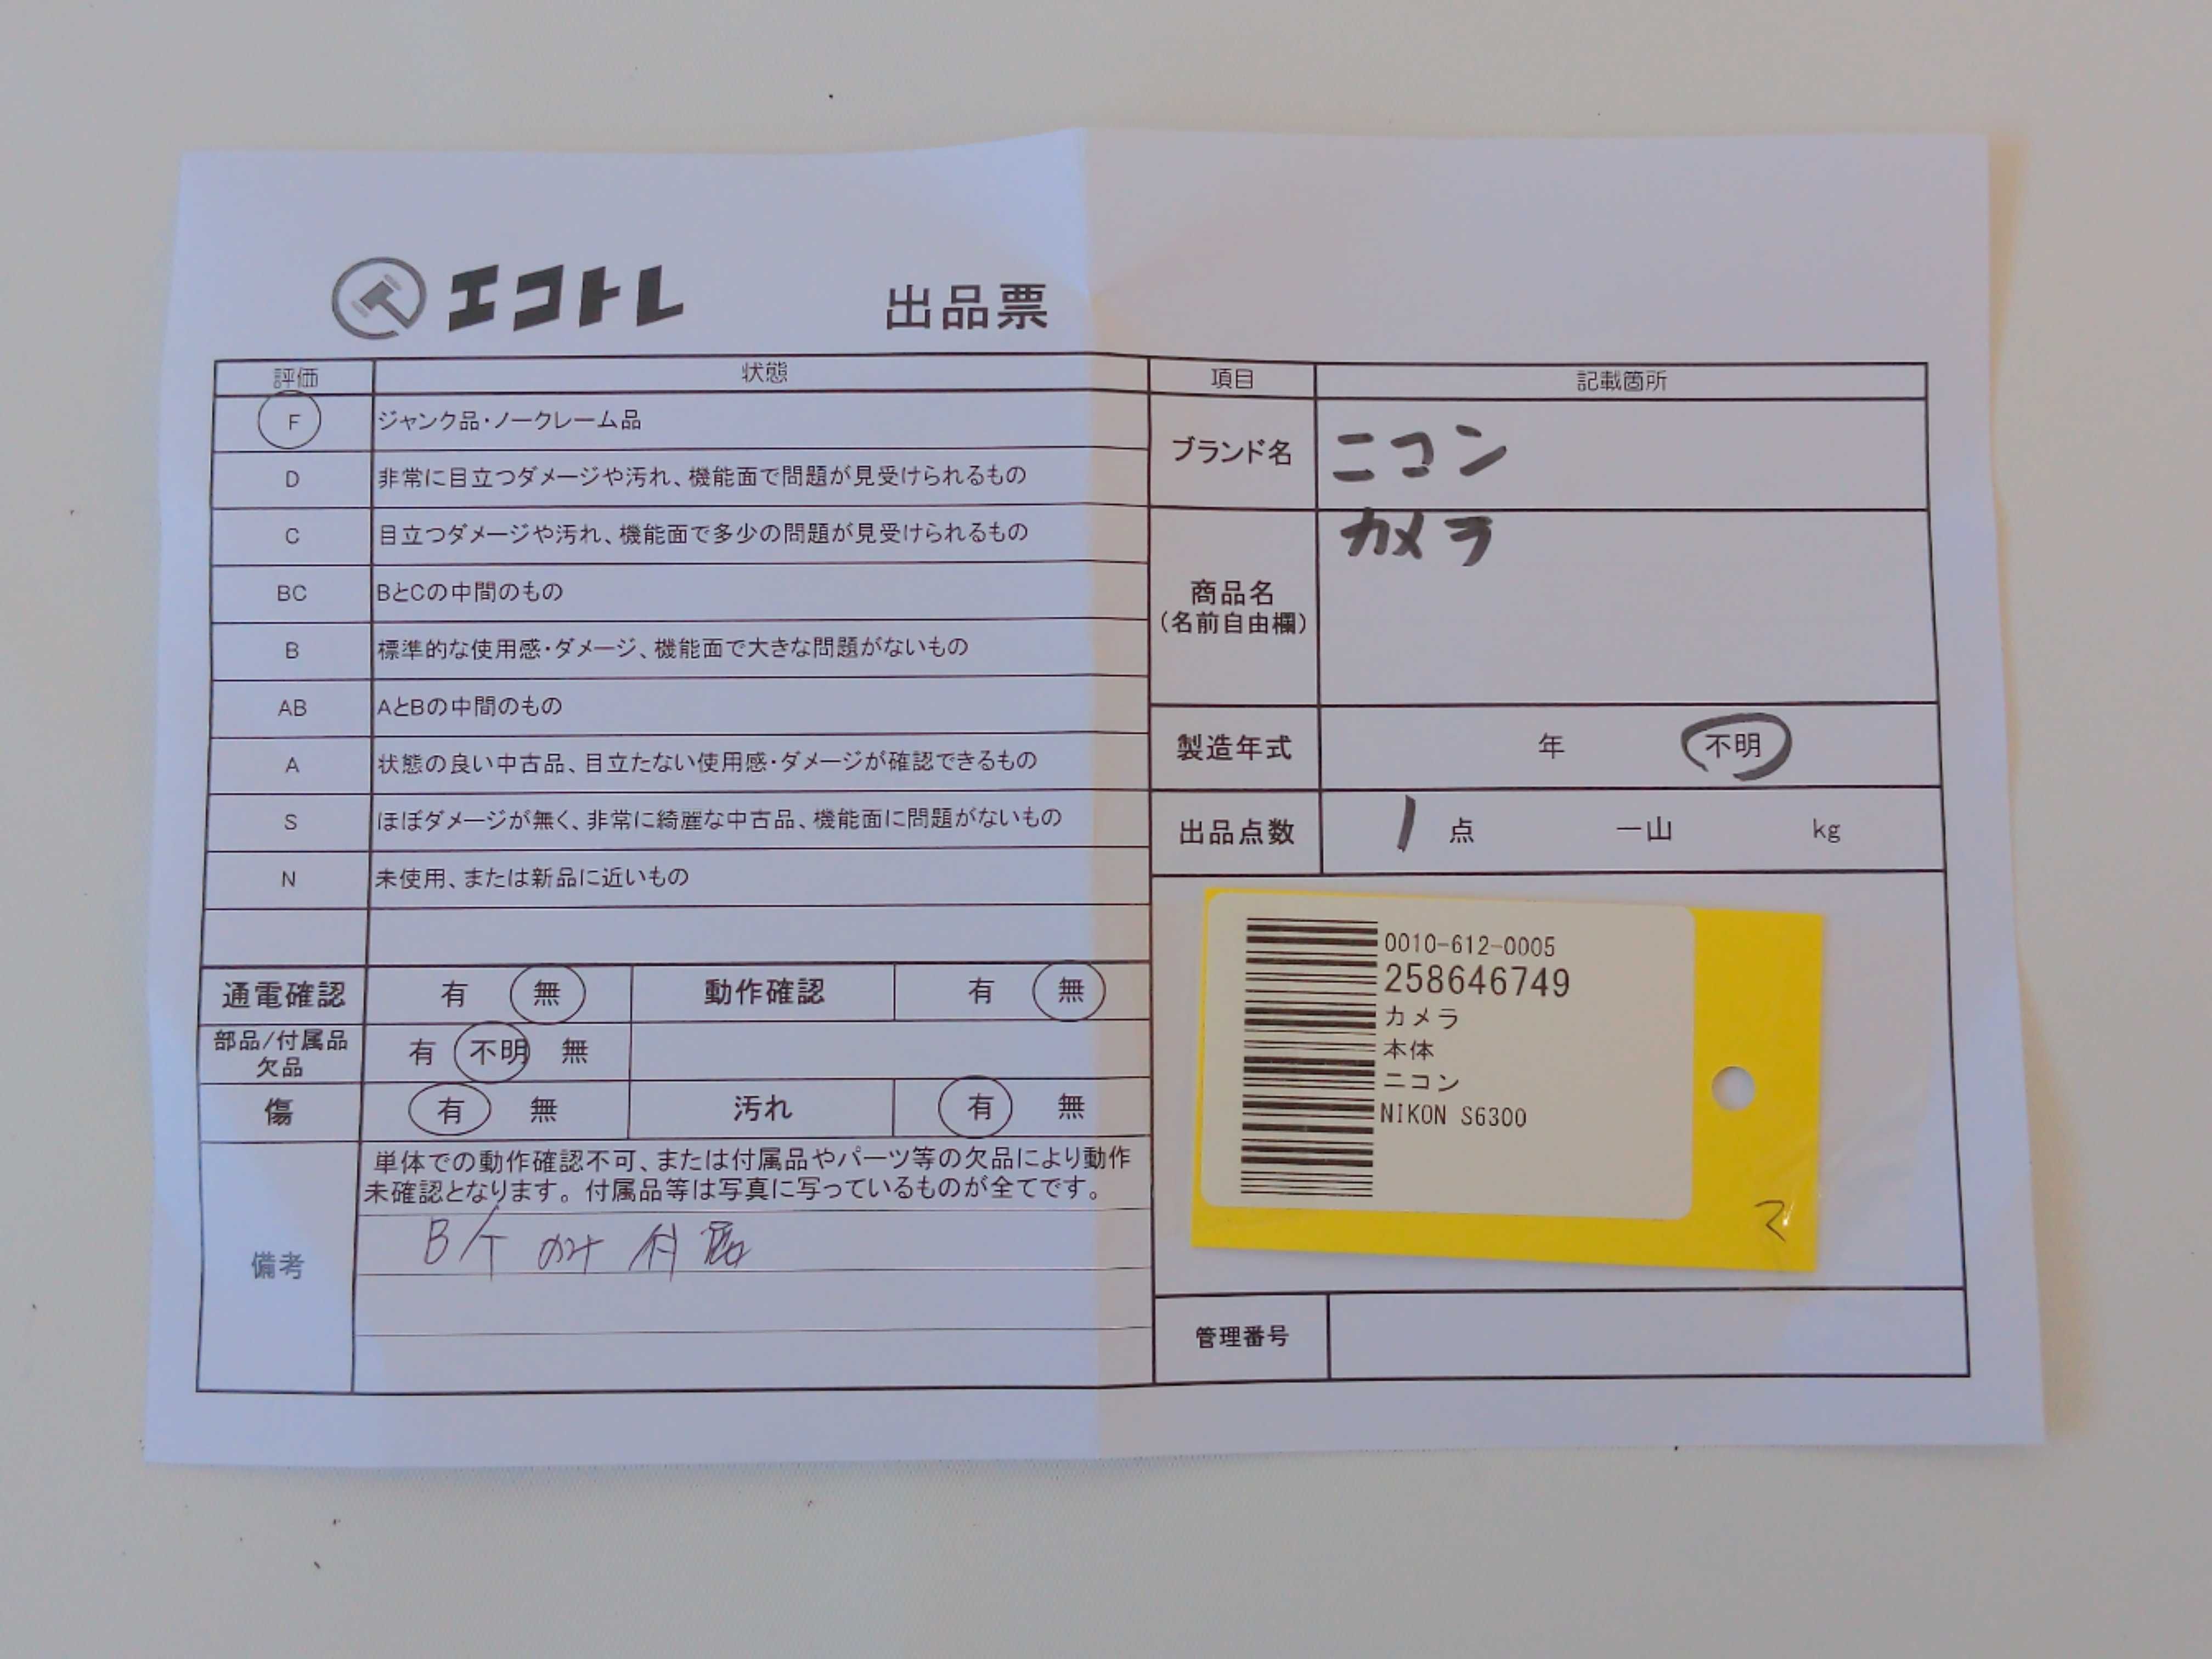 エコトレ 出品票
評価 状態
F ジャンク品・ノークレーム品
D 非常に目立つダメージや汚れ、機能面で問題が見受けられるもの
C 目立つダメージや汚れ、機能面で多少の問題が見受けられるもの
BC BとCの中間のもの
B 標準的な使用感・ダメージ、機能面で大きな問題がないもの
AB AとBの中間のもの
A 状態の良い中古品、目立たない使用感・ダメージが確認できるもの
S ほぼダメージが無く、非常に綺麗な中古品、機能面に問題がないもの
N 未使用、または新品に近いもの
通電確認 有 無 動作確認 有 無
部品/付属品
欠品 有 不明 無
傷 有 無 汚れ 有 無
備考
単体での動作確認不可、または付属品やパーツ等の欠品により動作
未確認となります。付属品等は写真に写っているものが全てです。
のみ付属
項目 記載箇所
ブランド名 ニコン
商品名
(名前自由欄)
カメラ
製造年式 年 不明
出品点数 1 点 一山 kg
0010-612-0005
258646749
カメラ
本体
ニコン
NIKON S6300
管理番号